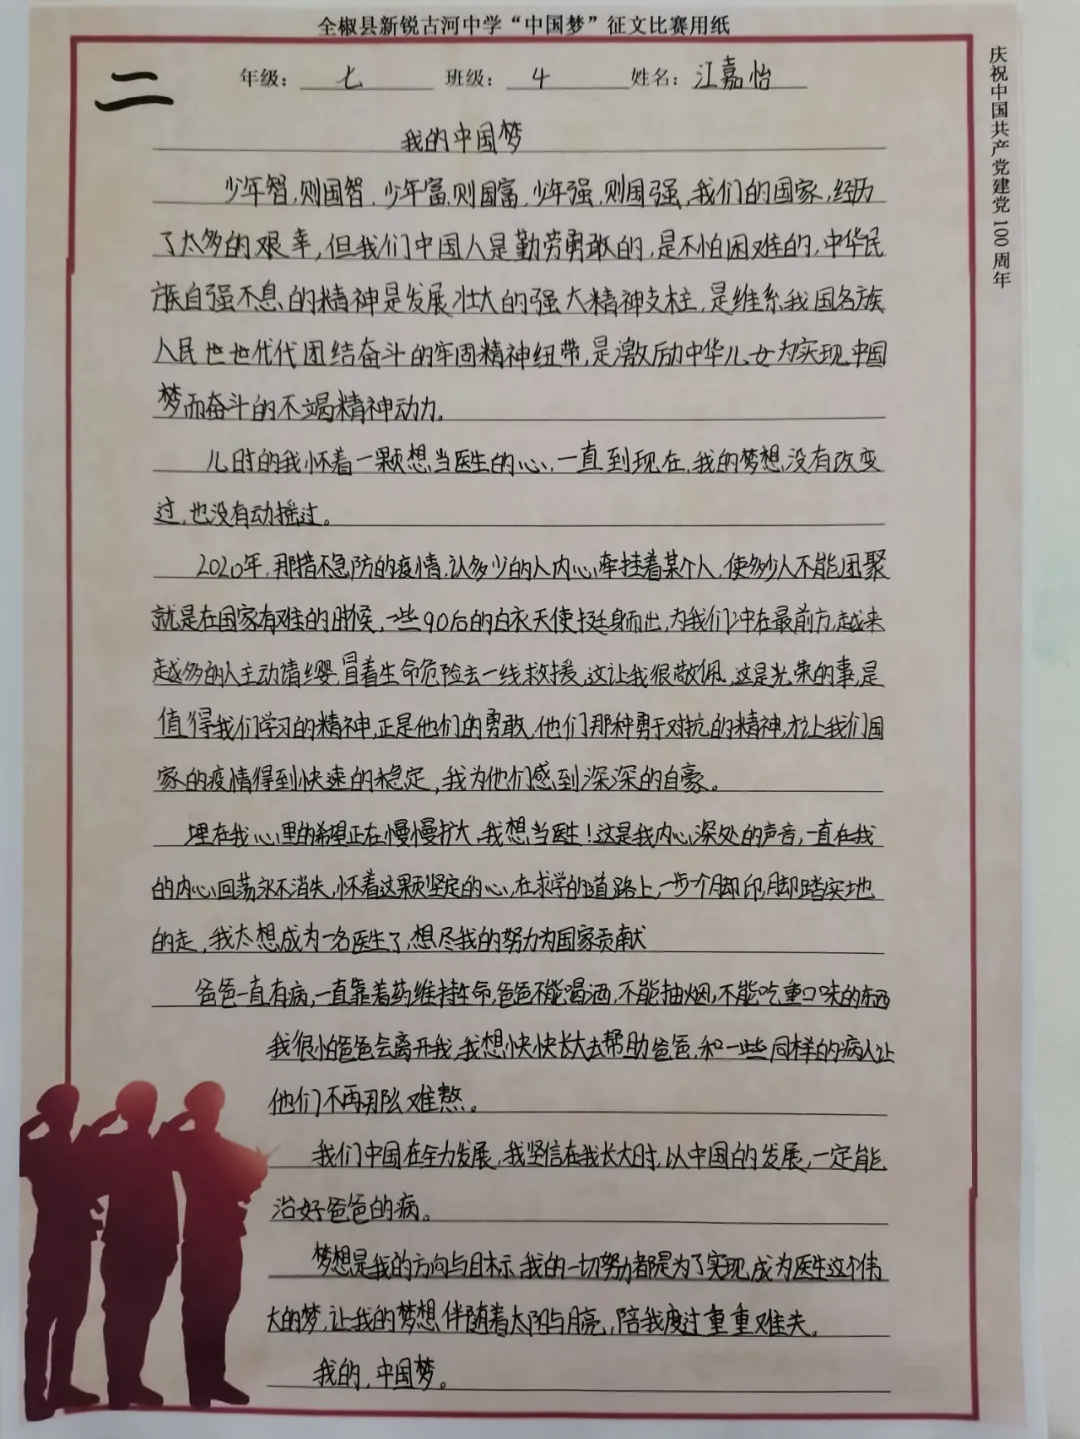 全椒县新锐古河中学“中国梦”征文比赛用纸
庆祝中国共产党建党100周年
二
年级：七 班级：4 姓名：江嘉怡
我的中国梦
少年智,则国智,少年富,则国富,少年强,则国强,我们的国家,经历
了太多的艰幸,但我们中国人是勤劳勇敢的,是不怕困难的,中华民
族自强不息的精神是发展壮大的强大精神支柱,是维系我国各族
人民世世代代团结奋斗的牢固精神纽带,是激励中华儿女为实现中国
梦而奋斗的不竭精神动力。
儿时的我怀着一颗想当医生的心,一直到现在,我的梦想没有改变
过,也没有动摇过。
2020年,那措不急防的疫情,让多少的人内心牵挂着某个人,使多少人不能团聚
就是在国家有难的时候,一些90后的白衣天使挺身而出,为我们冲在最前方,越来
越多的人主动请缨,冒着生命危险去一线救援,这让我很敬佩,这是光荣的事,是
值得我们学习的精神,正是他们的勇敢,他们那种勇于对抗的精神,才让我们国
家的疫情得到快速的稳定,我为他们感到深深的自豪。
埋在我心里的希望正在慢慢扩大,我想当医生!这是我内心深处的声音,一直在我
的内心回荡永不消失,怀着这颗坚定的心,在求学的道路上,一步个脚印,脚踏实地
的走,我太想成为一名医生了,想尽我的努力为国家贡献
爸爸一直有病,一直靠着药维持生命,爸爸不能喝酒,不能抽烟,不能吃重口味的东西
我很怕爸爸会离开我,我想快快长大去帮助爸爸,和一些同样的病人让
他们不再那么难熬。
我们中国在全力发展,我坚信在我长大时,以中国的发展,一定能
治好爸爸的病。
梦想是我的方向与目标,我的一切努力都是为了实现成为医生这个伟
大的梦,让我的梦想伴随着太阳与月亮,陪我度过重重难关。
我的,中国梦。